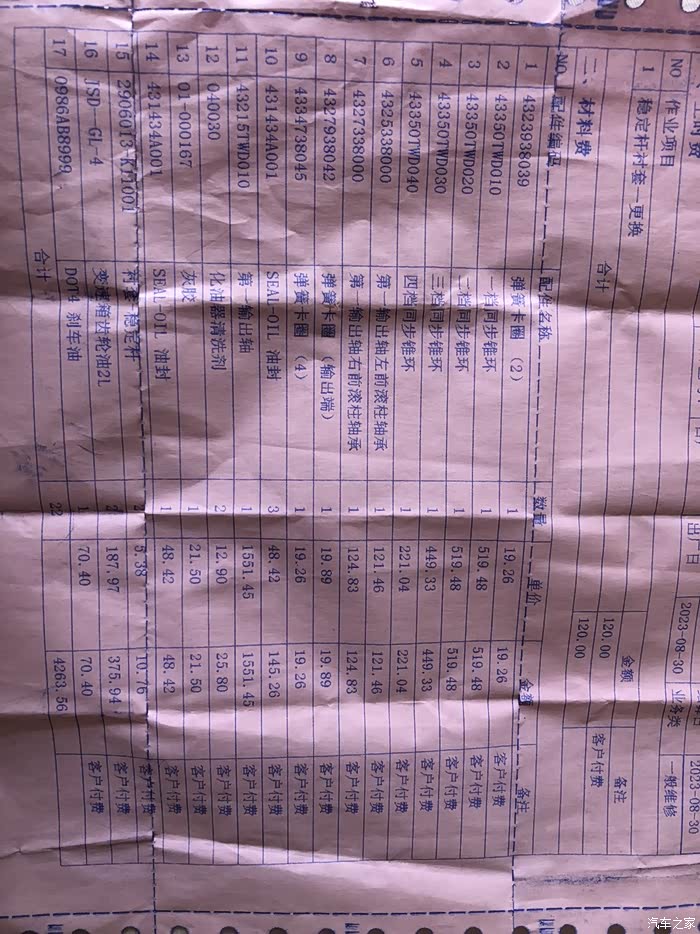 出厂日
2023-08-30
业务类
一般维修
2023-08-30
NO 作业项目 金额 备注
1 稳定杆衬套 更换 120.00 客户付费
合计 120.00
二、材料费
NO 配件编码 配件名称 数量 单价 金额 备注
1 4323938039 弹簧卡圈 (2) 1 19.26 19.26 客户付费
2 43350TWD010 一档同步锥环 1 519.48 519.48 客户付费
3 43350TWD020 二档同步锥环 1 519.48 519.48 客户付费
4 43350TWD030 三档同步锥环 1 449.33 449.33 客户付费
5 43350TWD040 四档同步锥环 1 221.04 221.04 客户付费
6 4325338000 第一输出轴左前滚柱轴承 1 121.46 121.46 客户付费
7 4327338000 第一输出轴右前滚柱轴承 1 124.83 124.83 客户付费
8 4327938042 弹簧卡圈 (输出端) 1 19.89 19.89 客户付费
9 4394738045 弹簧卡圈 (4) 1 19.26 19.26 客户付费
10 431434A001 SEAL-OIL 油封 3 48.42 145.26 客户付费
11 43215TWD010 第一输出轴 1 1551.45 1551.45 客户付费
12 040030 化油器清洗剂 2 12.90 25.80 客户付费
13 01-000167 灰胶 1 21.50 21.50 客户付费
14 431434A001 SEAL-OIL 油封 1 48.42 48.42 客户付费
15 衬套-稳定杆 2 5.38 10.76 客户付费
16 JSD-GL-4 变速箱齿轮油2L 2 187.97 375.94 客户付费
17 0986AB8999 DOT4 刹车油 1 70.40 70.40 客户付费
合计 22 4263.56
汽车之家